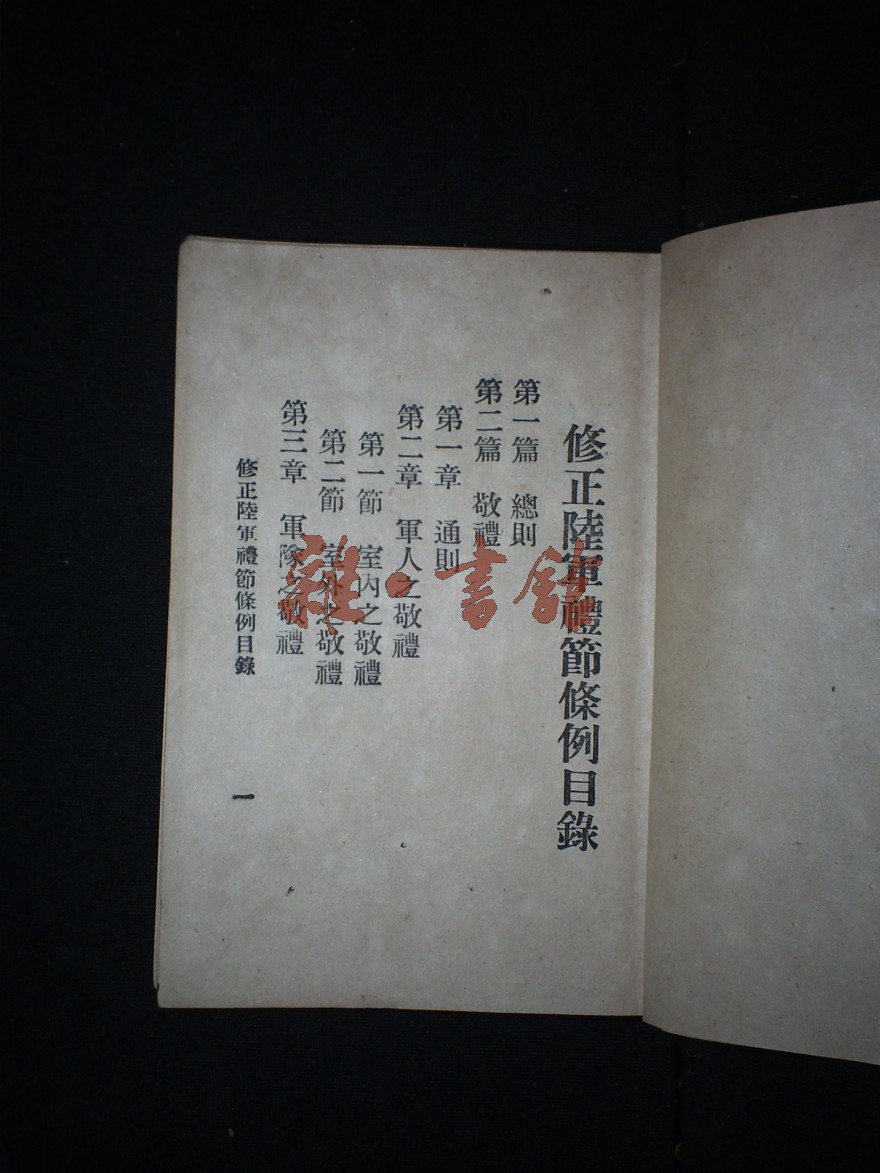 修正陸軍禮節條例目錄
第一篇　總則
第二篇　敬禮
第一章　通則
第二章　軍人之敬禮
第一節　室內之敬禮
第二節　室外之敬禮
第三章　軍隊之敬禮
修正陸軍禮節條例目錄
一
雜·書館